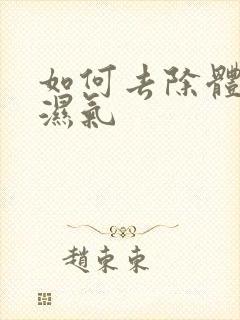 如何去除體
濕氣
趙東東